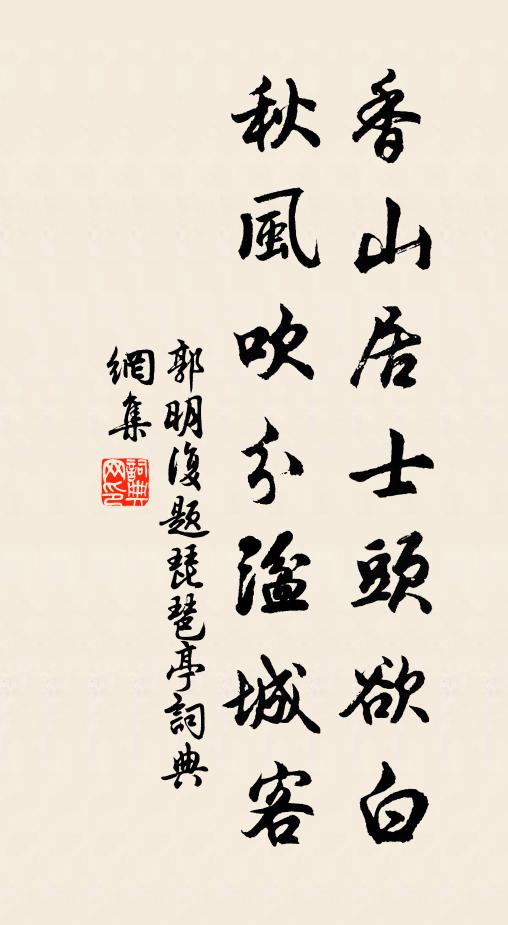 香山居士頭欲白
秋風吹分湓城客
郭明復題琵琶亭詞典
網集
詞典
网印